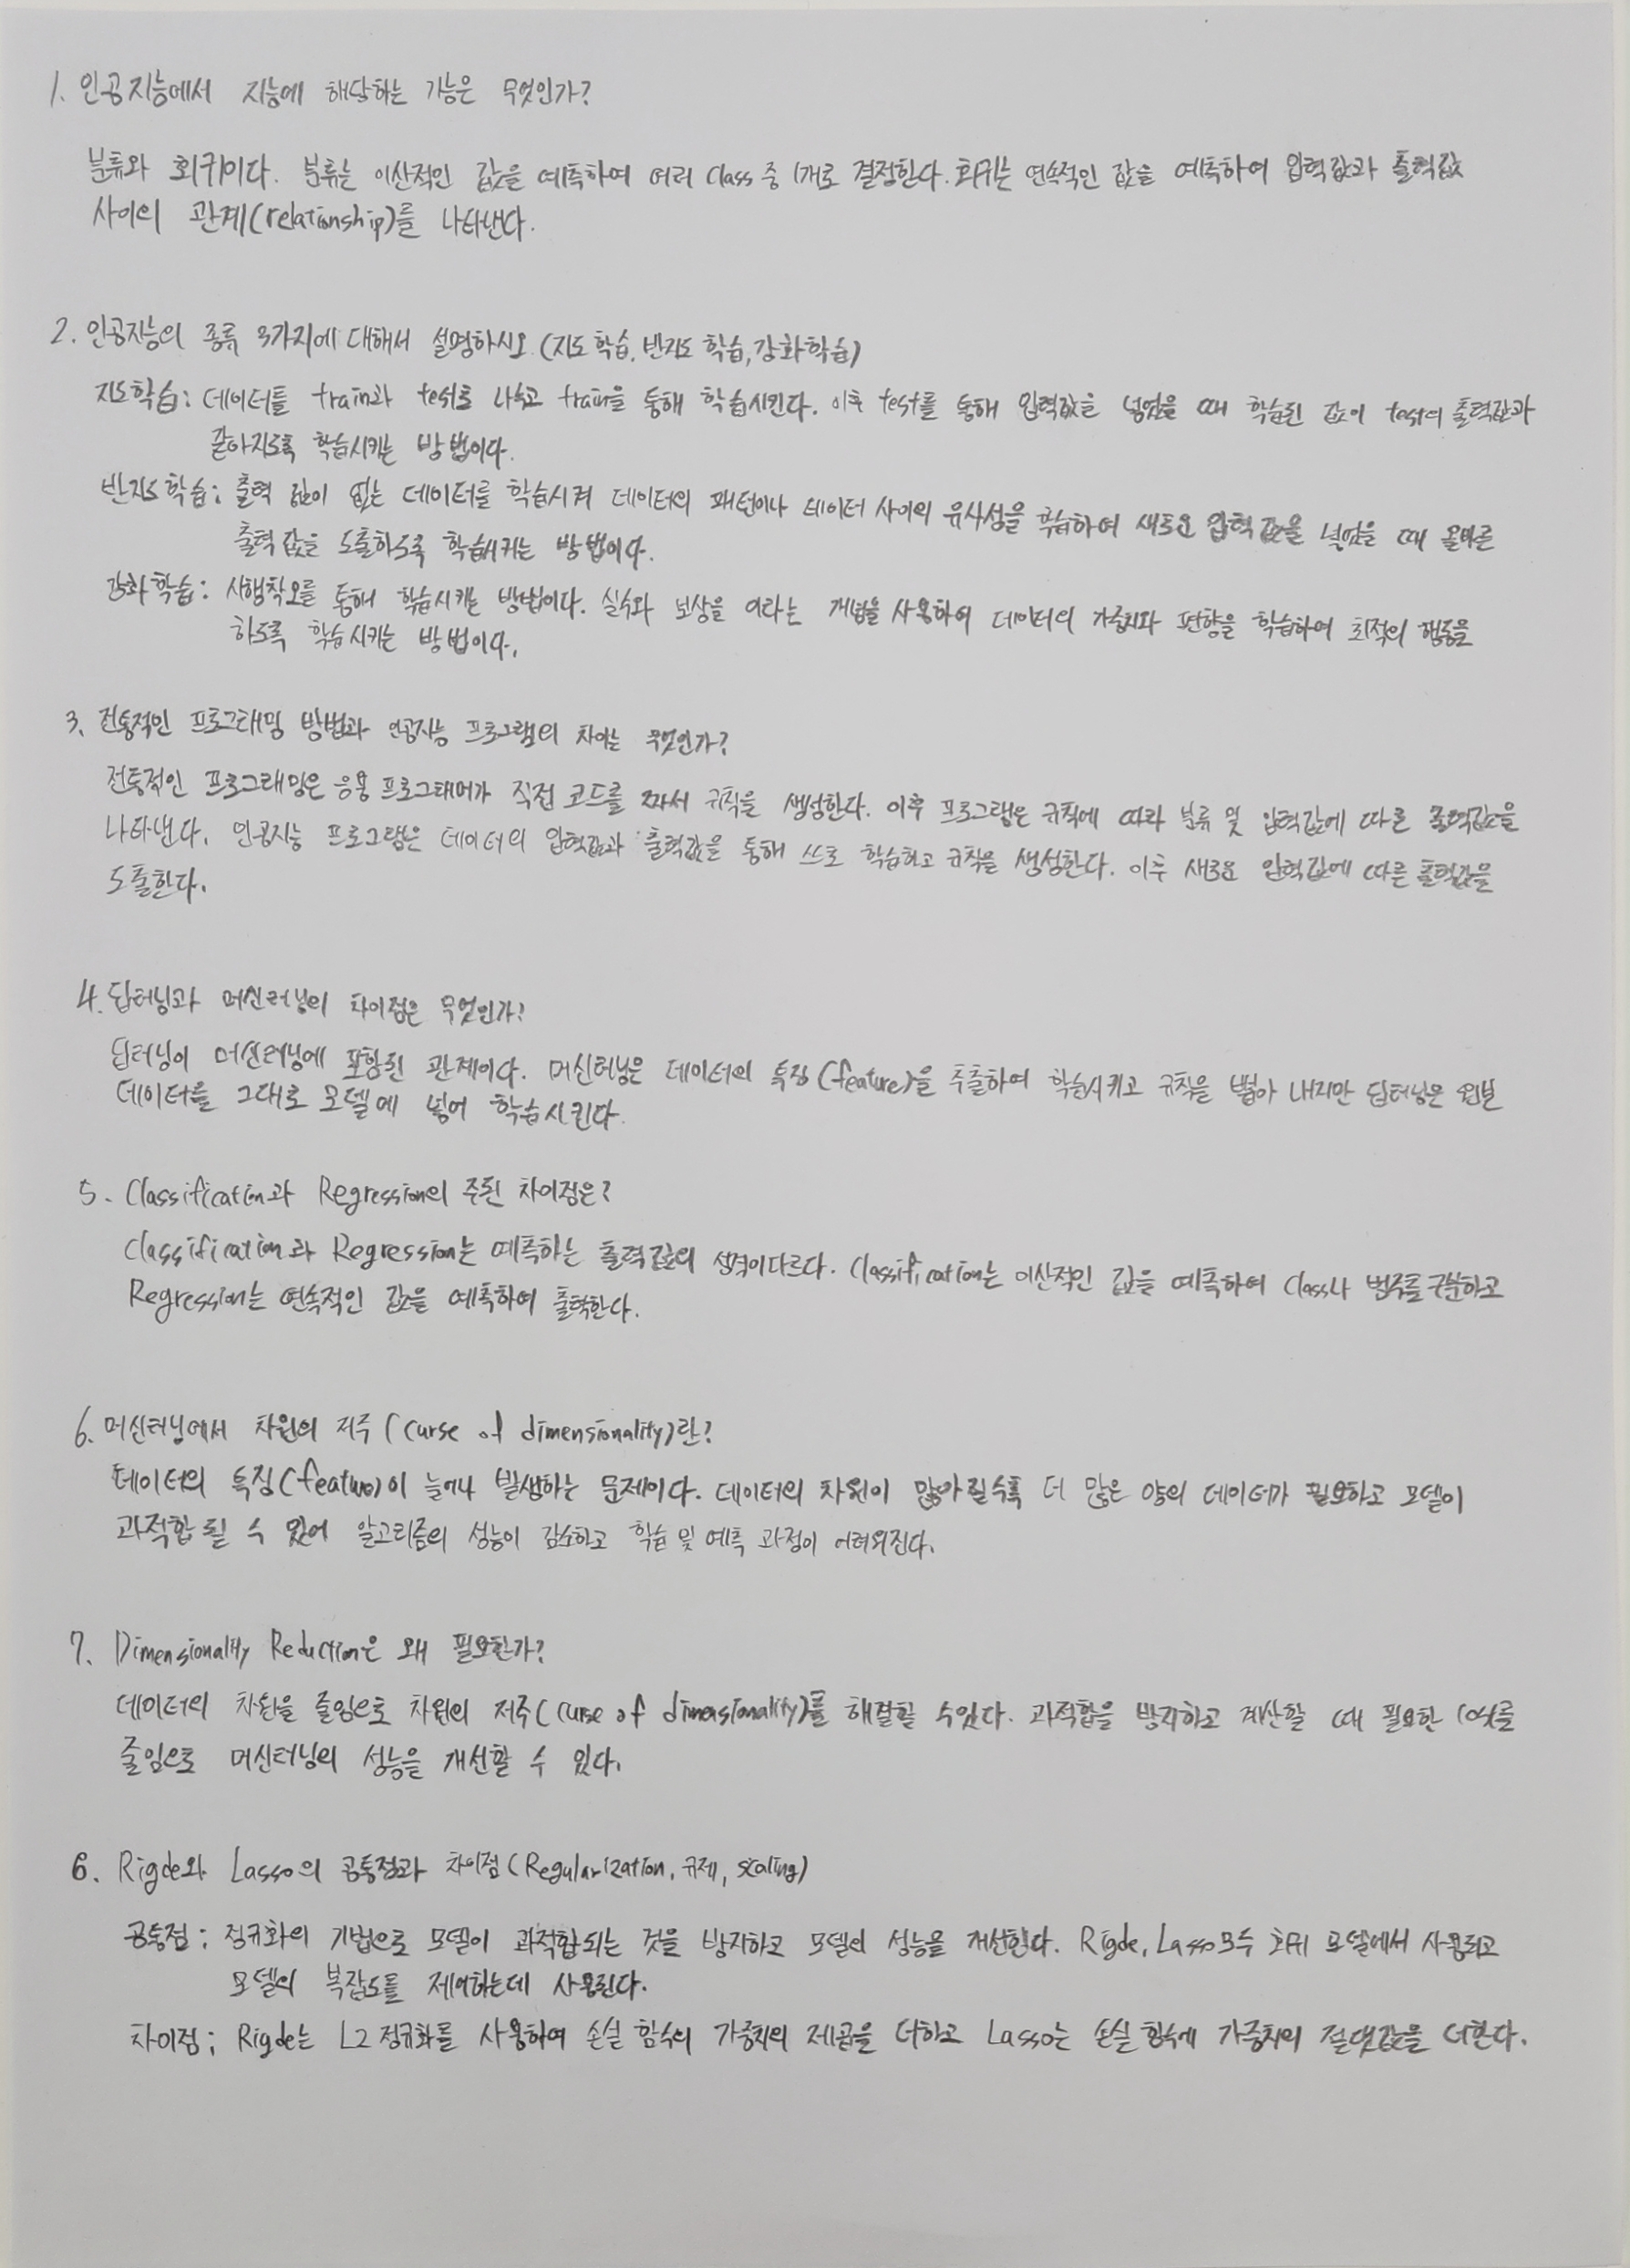 1. 인공지능에서 지능에 해당하는 기능은 무엇인가?
분류와 회귀이다. 분류는 이산적인 값을 예측하여 여러 Class 중 1개로 결정한다. 회귀는 연속적인 값을 예측하여 입력값과 출력값
사이의 관계(relationship)를 나타낸다.
2. 인공지능의 종류 3가지에 대해서 설명하시오 (지도 학습, 반지도 학습, 강화 학습)
지도학습: 데이터를 train과 test로 나누고 train을 통해 학습시킨다. 이후 test를 통해 입력값을 넣었을 때 학습된 값이 test의 출력값과
같아지도록 학습시키는 방법이다.
반지도 학습: 출력 값이 없는 데이터를 학습시켜 데이터의 패턴이나 데이터 사이의 유사성을 학습하여 새로운 입력 값을 넣었을 때 올바른
출력 값을 도출하도록 학습시키는 방법이다.
강화 학습: 시행착오를 통해 학습시키는 방법이다. 실수와 보상을 이라는 개념을 사용하여 데이터의 가중치와 편향을 학습하여 최적의 행동을
하도록 학습시키는 방법이다.
3. 전통적인 프로그래밍 방법과 인공지능 프로그램의 차이는 무엇인가?
전통적인 프로그래밍은 응용 프로그래머가 직접 코드를 짜서 규칙을 생성한다. 이후 프로그램은 규칙에 따라 분류 및 입력값에 따른 출력값을
나타낸다. 인공지능 프로그램은 데이터의 입력값과 출력값을 통해 스스로 학습하고 규칙을 생성한다. 이후 새로운 입력값에 따른 출력값을
도출한다.
4. 딥러닝과 머신러닝의 차이점은 무엇인가?
딥러닝이 머신러닝에 포함된 관계이다. 머신러닝은 데이터의 특징(feature)을 추출하여 학습시키고 규칙을 뽑아 내지만 딥러닝은 원본
데이터를 그대로 모델에 넣어 학습시킨다.
5. Classification과 Regression의 주된 차이점은?
Classification과 Regression는 예측하는 출력값의 성격이다르다. Classification는 이산적인 값을 예측하여 Class나 범주를 구분하고
Regression는 연속적인 값을 예측하여 출력한다.
6. 머신러닝에서 차원의 저주 (Curse of dimensionality)란?
데이터의 특징(feature)이 늘어나 발생하는 문제이다. 데이터의 차원이 많아질수록 더 많은 양의 데이터가 필요하고 모델이
과적합 될 수 있어 알고리즘의 성능이 감소하고 학습 및 예측 과정이 어려워진다.
7. Dimensionality Reduction은 왜 필요한가?
데이터의 차원을 줄임으로 차원의 저주(Curse of dimensionality)를 해결할 수있다. 과적합을 방지하고 계산할 때 필요한 cost를
줄임으로 머신러닝의 성능을 개선할 수 있다.
8. Rigde와 Lasso의 공통점과 차이점 (Regularization, 규제, scaling)
공통점: 정규화의 기법으로 모델이 과적합되는 것을 방지하고 모델의 성능을 개선한다. Rigde, Lasso 모두 회귀 모델에서 사용되고
모델의 복잡도를 제어하는데 사용된다.
차이점: Rigde는 L2 정규화를 사용하여 손실 함수의 가중치의 제곱을 더하고 Lasso는 손실 함수에 가중치의 절댓값을 더한다.